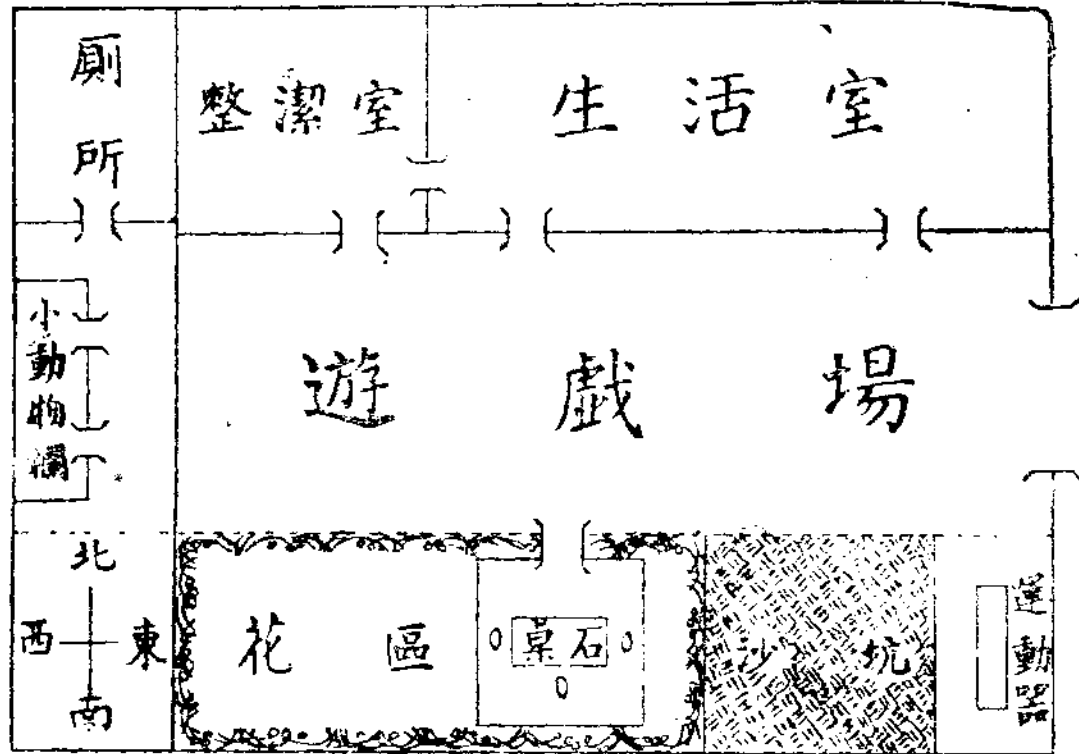 厠所
整潔室
生活室
小動物欄
遊戯場
北
西
東
南
花區
桌石
沙坑
運動器